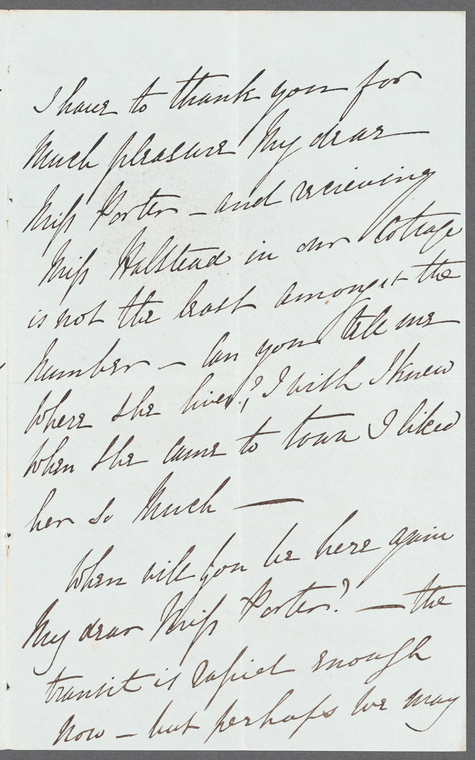 I have to thank you for
Much pleasure My dear
Miss Porter – and recieving
Miss Halstead in our Cottage
is not the least amongst the
number – Can you tell me
Where she lives?, I wish I knew
When she came to town I liked
her so Much —
When will you be here again
My dear Miss Porter? – the
transit is rapid enough
Now – but perhaps we may